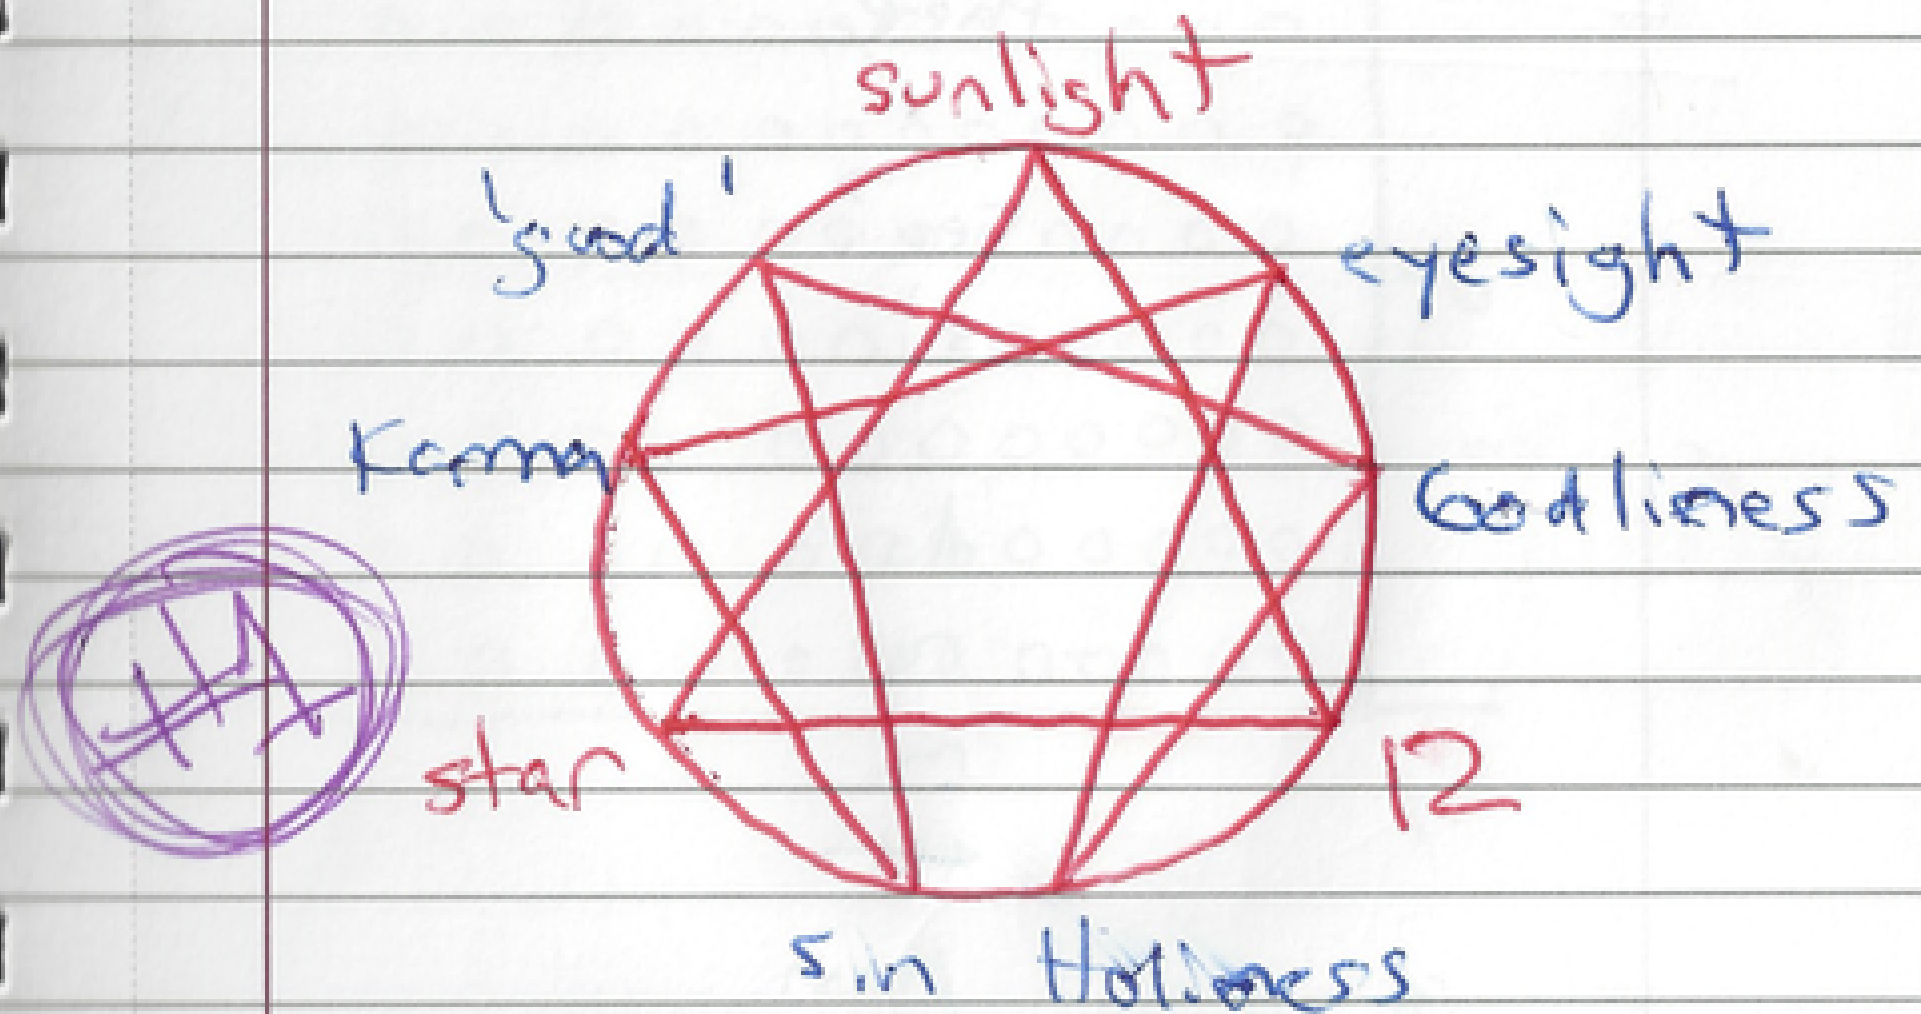 sunlight
'good'
eyesight
Karma
Godliness
star
12
sin Holiness